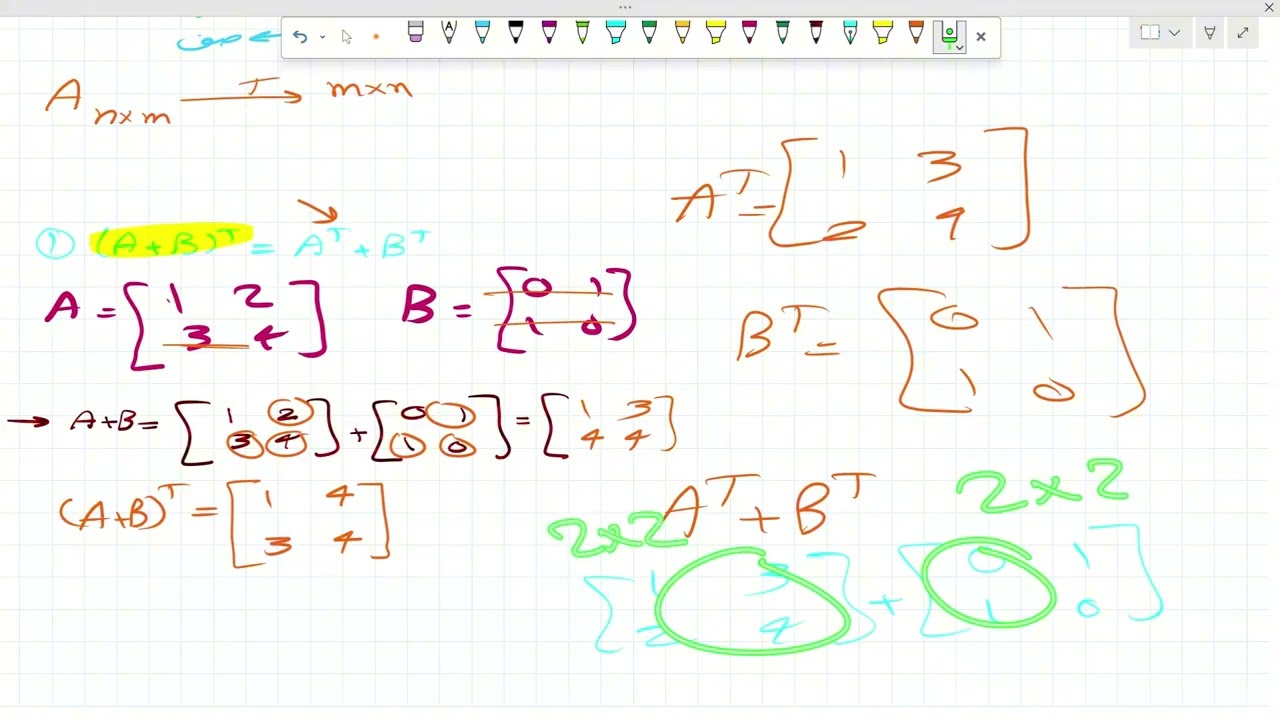 صف ←
A n×m —T→ m×n
① (A+B)ᵀ = Aᵀ + Bᵀ
A = [1 2
3 4]
B = [0 1
1 0]
→ A+B = [1 2
3 4] + [0 1
1 0] = [1 3
4 4]
(A+B)ᵀ = [1 4
3 4]
Aᵀ = [1 3
2 4]
Bᵀ = [0 1
1 0]
Aᵀ + Bᵀ
2×2 2×2
[1 3
2 4] + [0 1
1 0]